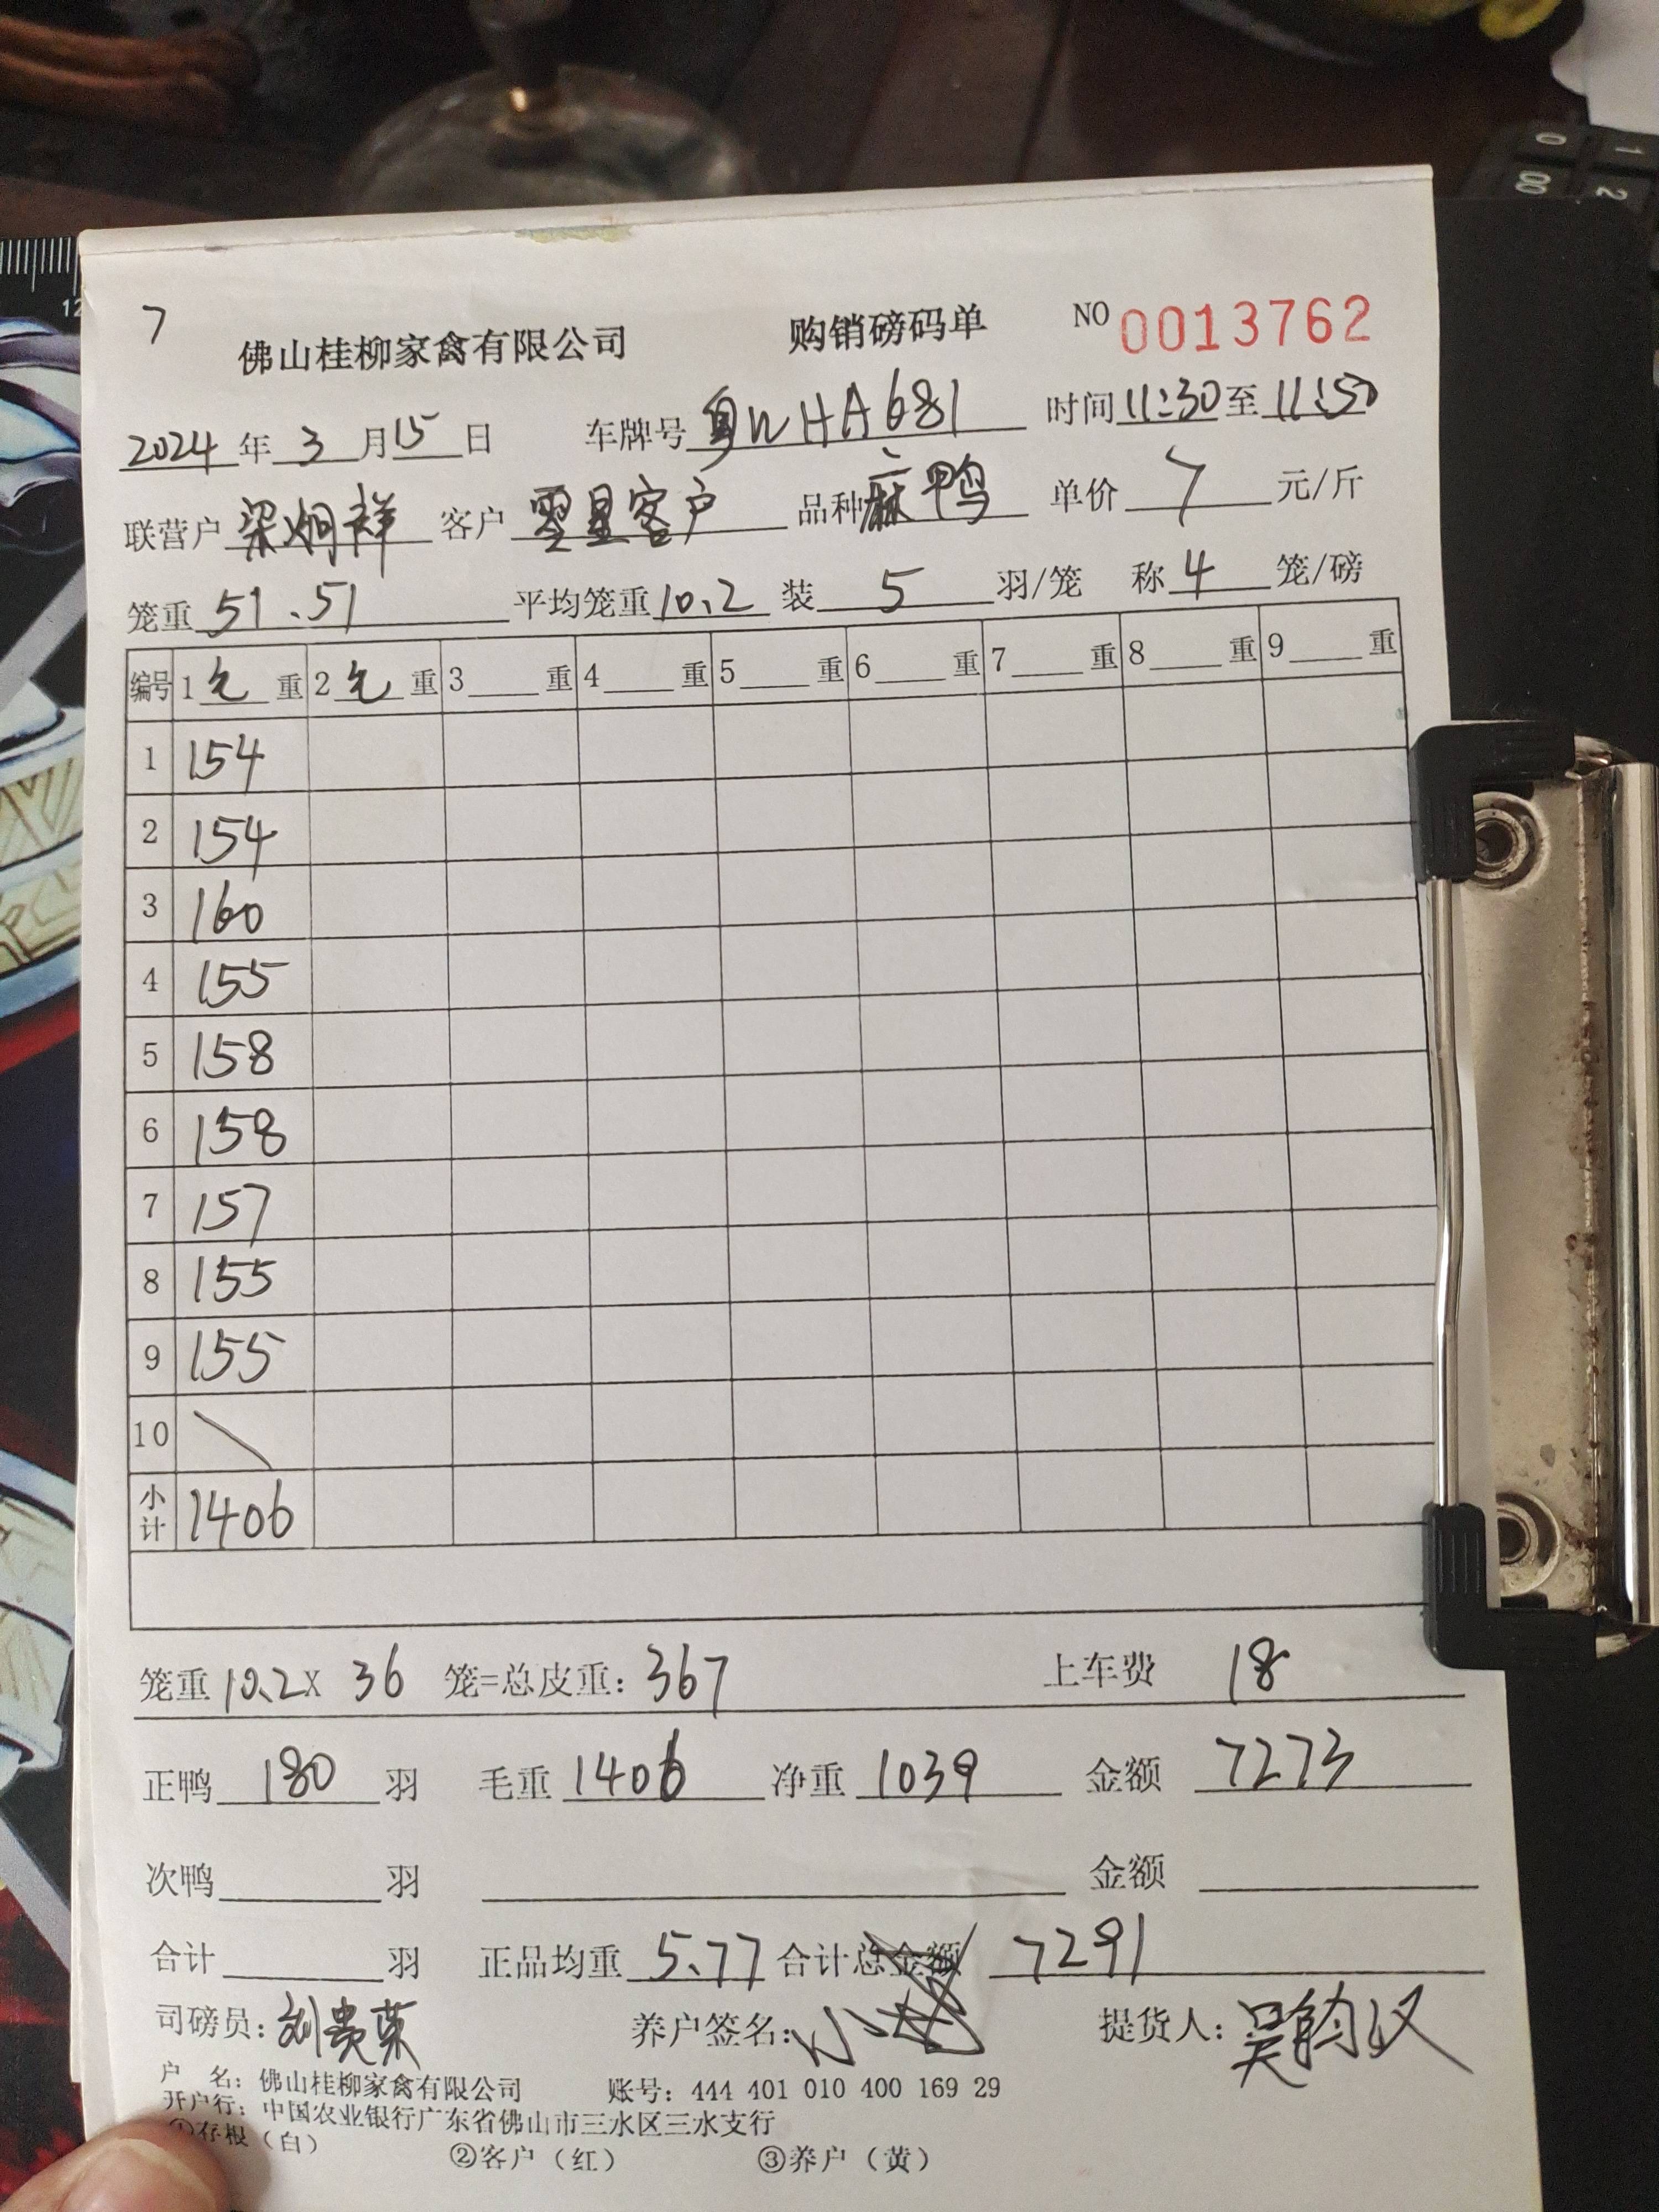 7
佛山桂柳家禽有限公司 购销磅码单 NO 0013762
2024 年 3 月 15 日 车牌号 粤WHA681 时间 11:30 至 11:50
联营户 梁炯祥 客户 零星客户 品种 麻鸭 单价 7 元/斤
笼重 51.51 平均笼重 10.2 装 5 羽/笼 称 4 笼/磅
编号 1 毛 重 2 毛 重 3 重 4 重 5 重 6 重 7 重 8 重 9 重
1 154
2 154
3 160
4 155
5 158
6 158
7 157
8 155
9 155
10
小计 1406
笼重 10.2 X 36 笼=总皮重: 367 上车费 18
正鸭 180 羽 毛重 1406 净重 1039 金额 7273
次鸭 羽 金额
合计 羽 正品均重 5.77 合计总金额 7291
司磅员: 刘贵荣 养户签名: 提货人: 吴钧汉
户 名: 佛山桂柳家禽有限公司 账号: 444 401 010 400 169 29
开户行: 中国农业银行广东省佛山市三水区三水支行
①存根(白) ②客户(红) ③养户(黄)
12
0 1
00 2